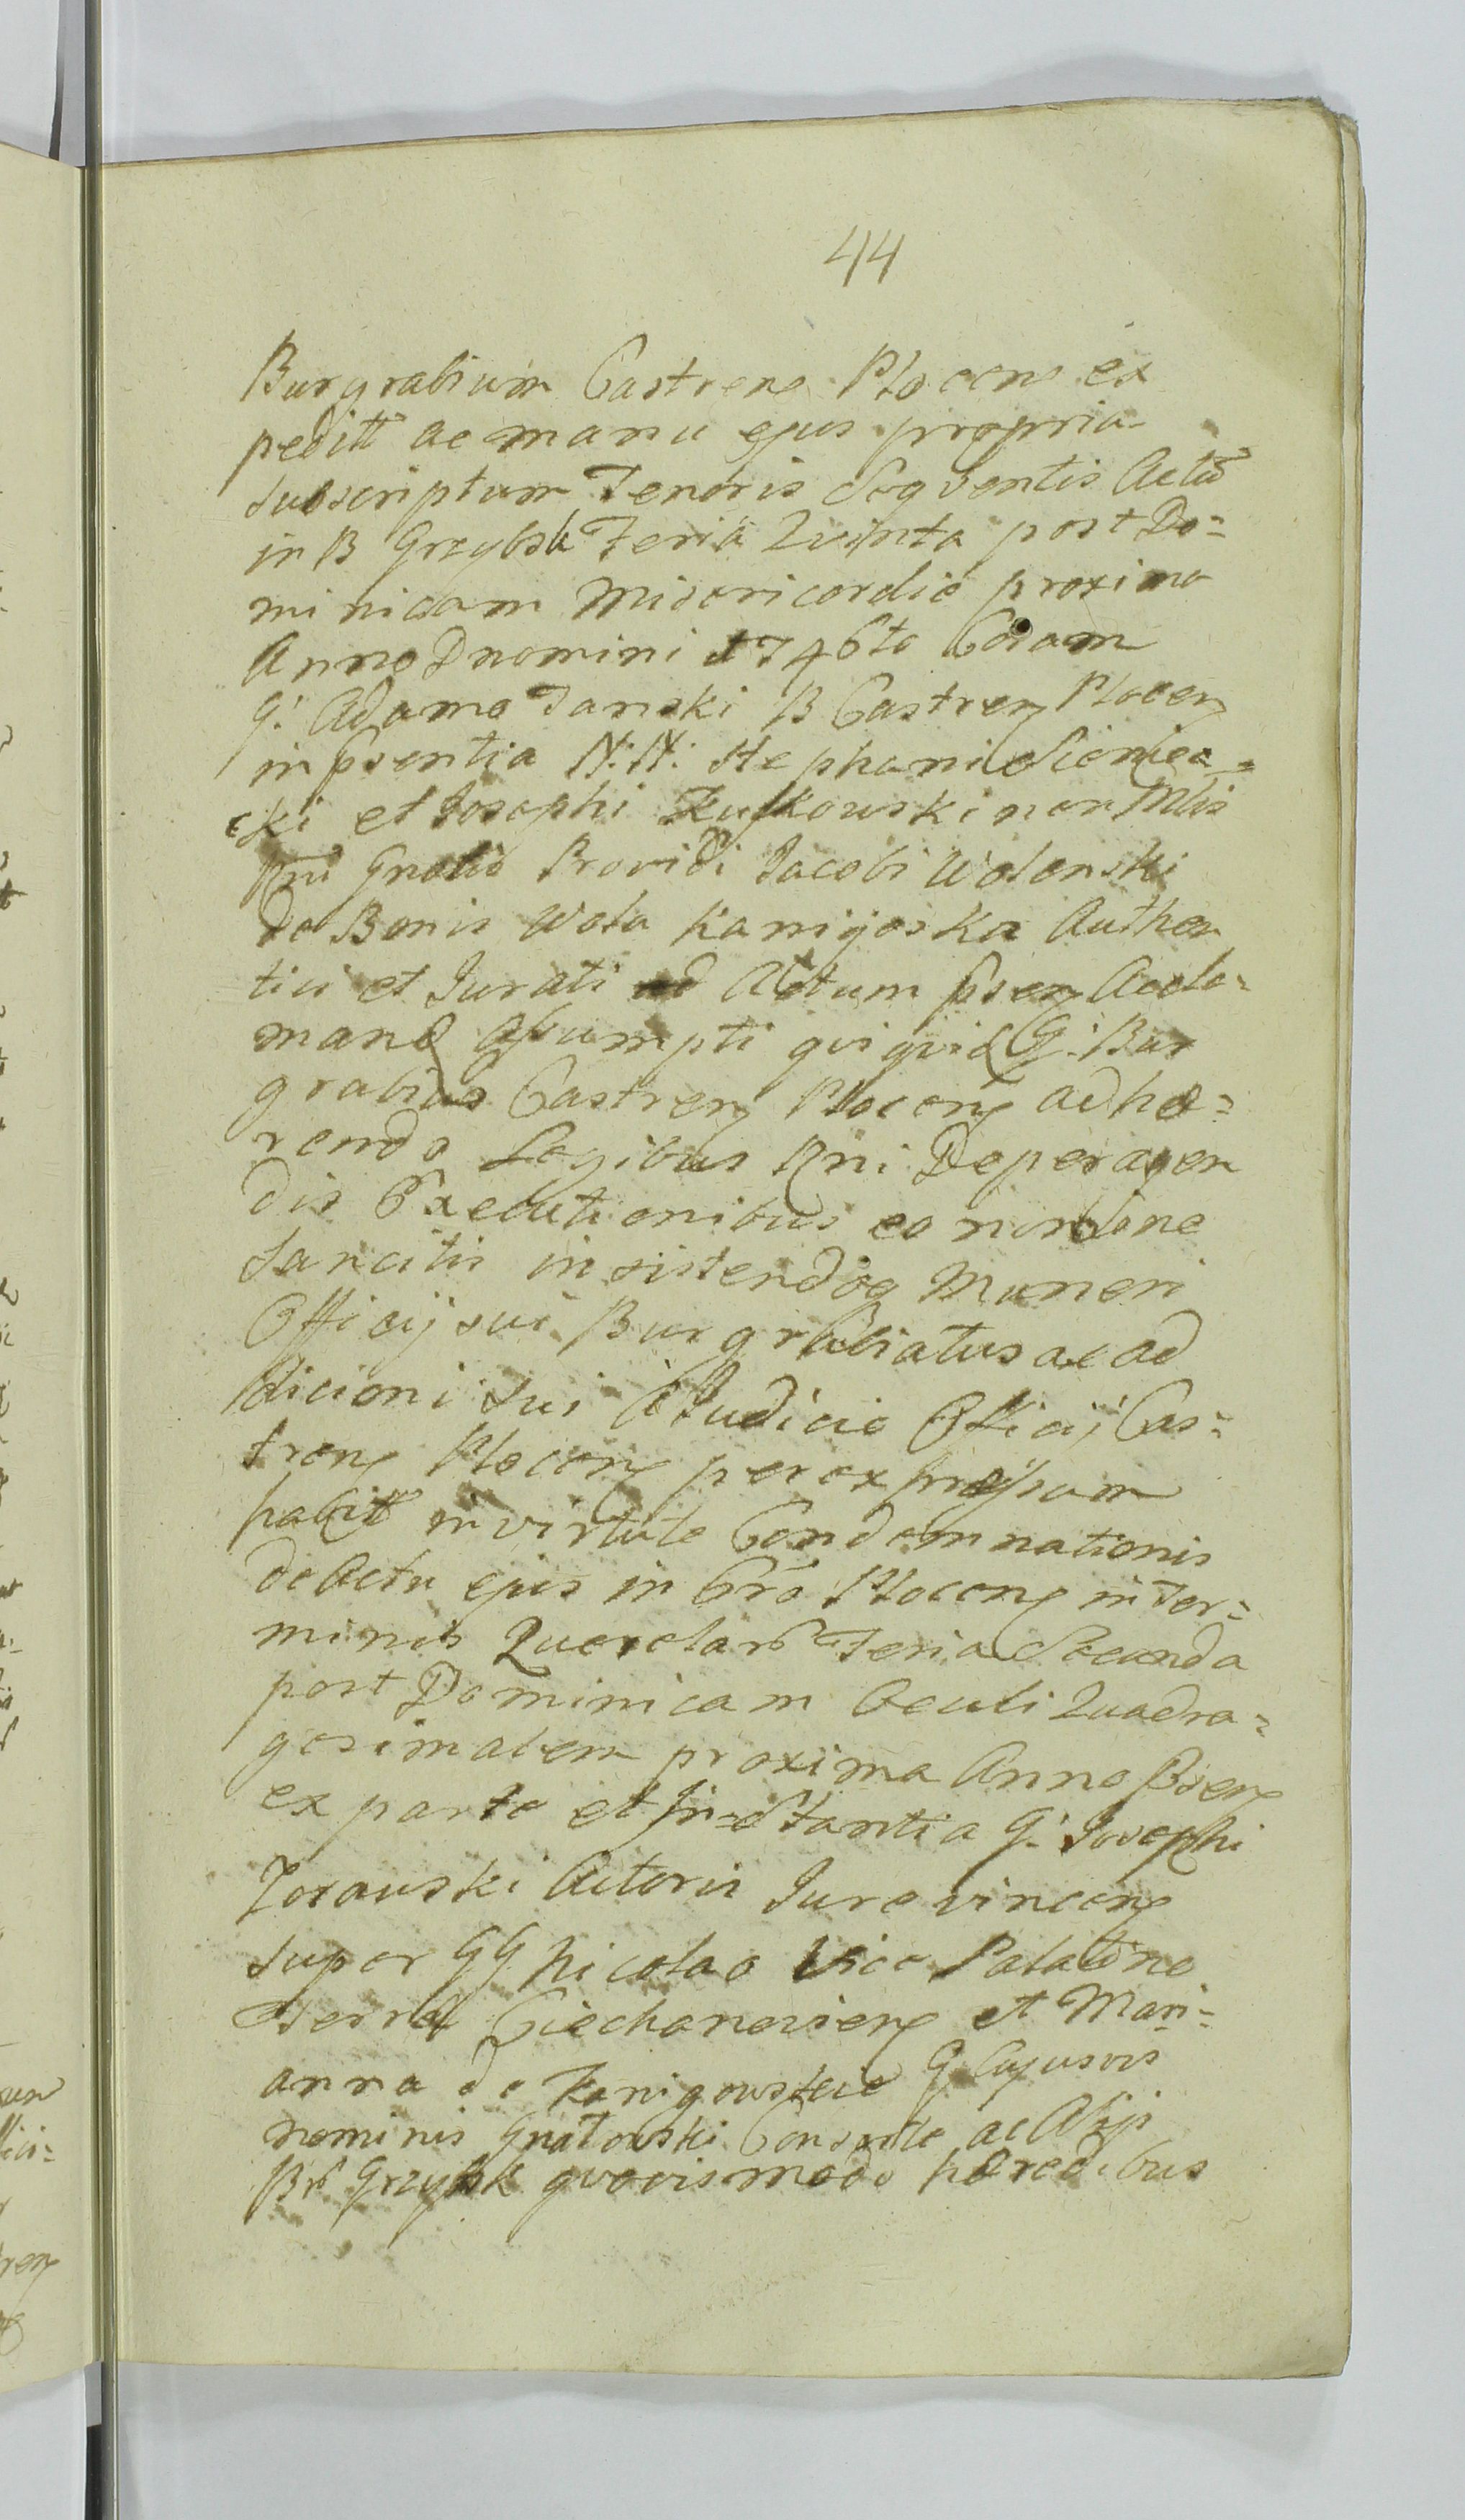 44
Burgrabium Castrens Plocens ex
peditt ac manu ejus propria
subscriptum Tenoris Seqventis Actū
in B Grzybsk Feria Quinta post Do=
minicam Misericordie proxima
Anno Dnomini 1746to Coram
G: Adamo Janski B Castren Plocen
in psentia N: N: Stephani
ski et Josephi Zutkowski nor Mlis
Rni Gnalis Providi Jacobi Wolenski
de Bonis Wola Kanigoska Authen
tici et Jurati ad Actum psen Acela=
mand Assumpti qviqvid G: Bur
grabius Castren Plocen adhe=
rendo Legibus Rni De peragen
dis Executionibus eo nordine
Sancitis insistendoq Muneri
Officij sui Burgrabiatus ac ad
dicioni sui à Judicio Officij Cas=
tren Plocen per expressum
habitt in virtute Condemnationis
de Actu ejus in Cro Plocen in Ter=
minis Querelarū Feria Secunda
post Dominicam Oculi Quadra=
gesimalem proxima Anno psen
ex parte et Instantia G: Josephi
Zorawski Actoris Jure vincen
super GG Nicolao Vice Palatino
Terræ Ciechanovien et Mari=
anna de Kanigowskie G Cujusvis
nominis Gnatowski Consorte ac Alijs
Brū Grzybsk qvovismodo hæredibus